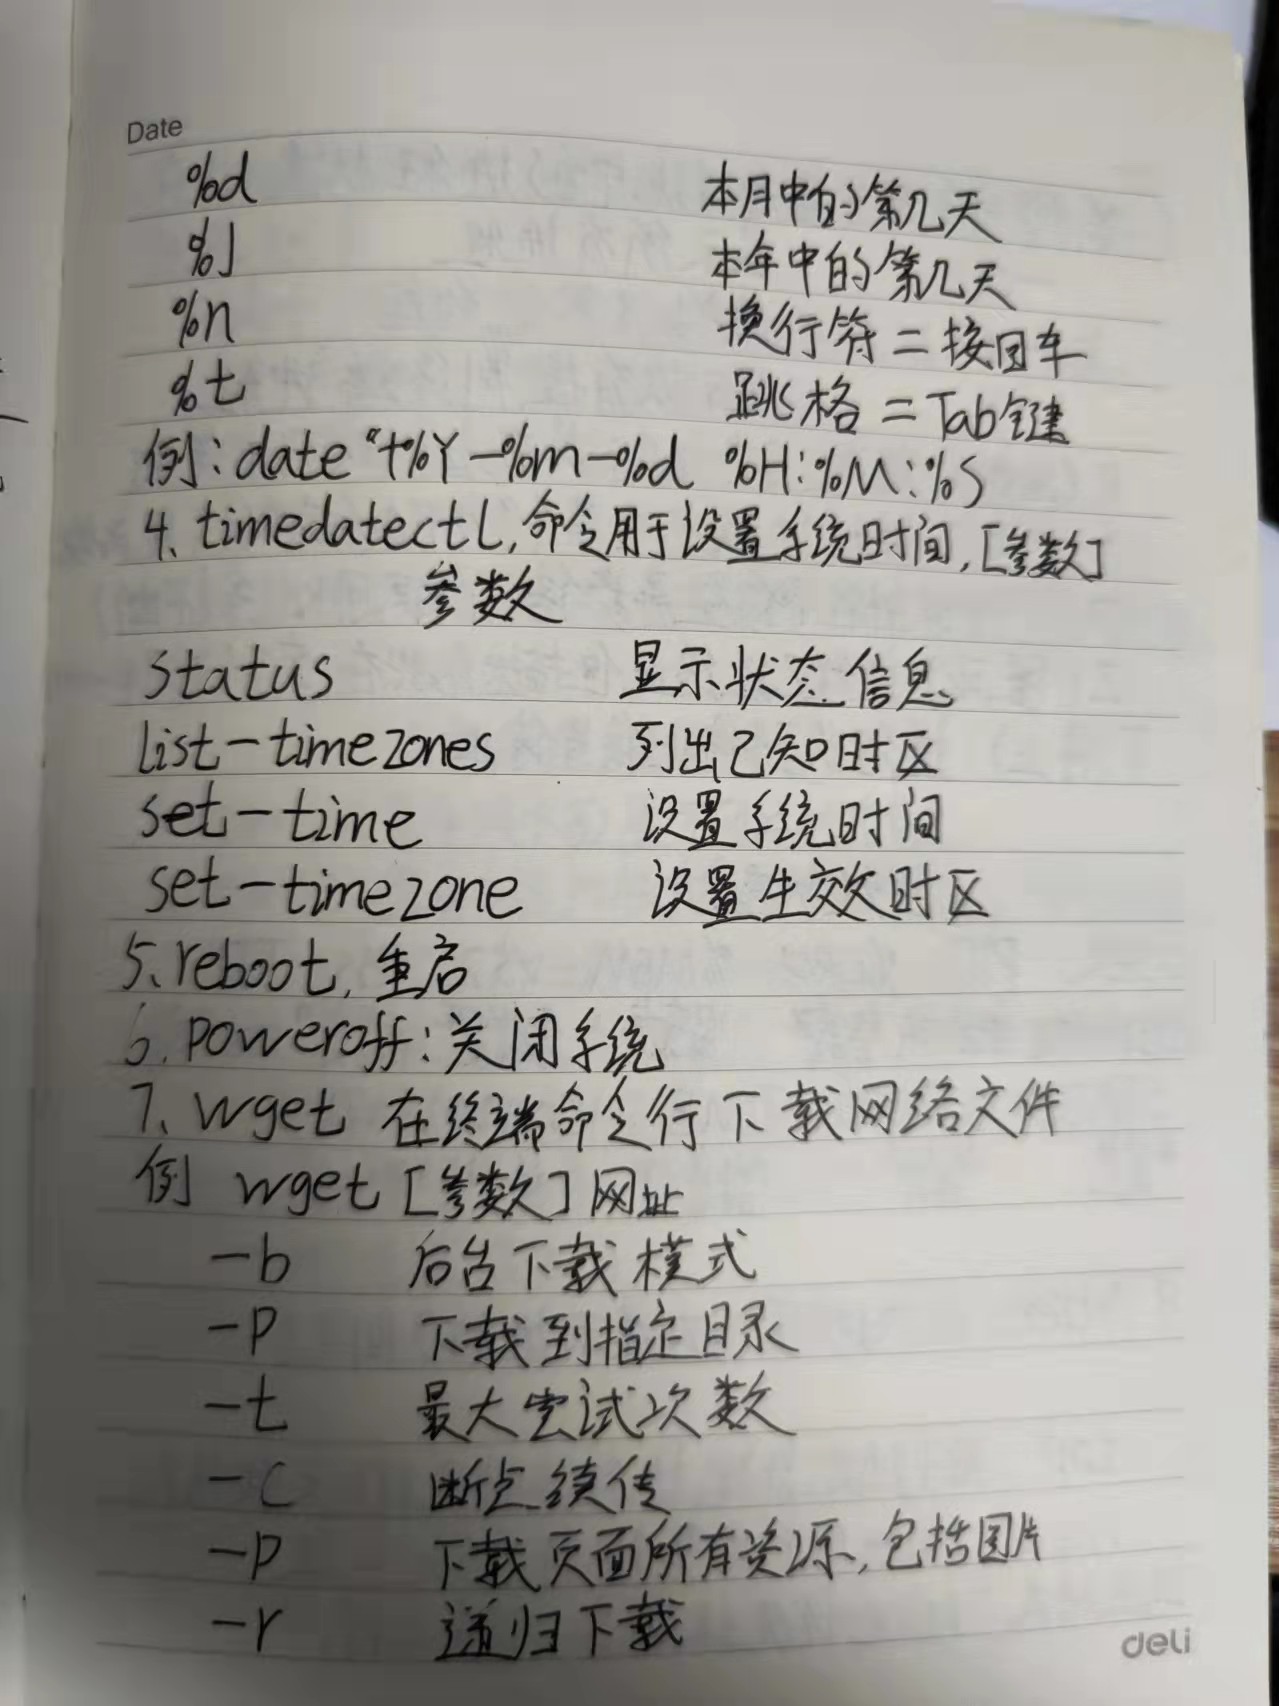 Date
%d 本月中的第几天
%J 本年中的第几天
%n 换行符 = 按回车
%t 跳格 = Tab键
例：date “+%Y-%m-%d %H:%M:%S
4、timedatectl，命令用于设置系统时间，[参数]
参数
status 显示状态信息
list-timezones 列出已知时区
set-time 设置系统时间
set-timezone 设置生效时区
5、reboot，重启
6、poweroff：关闭系统
7、wget 在终端命令行下载网络文件
例 wget [参数] 网址
-b 后台下载模式
-P 下载到指定目录
-t 最大尝试次数
-c 断点续传
-p 下载页面所有资源，包括图片
-r 递归下载
deli